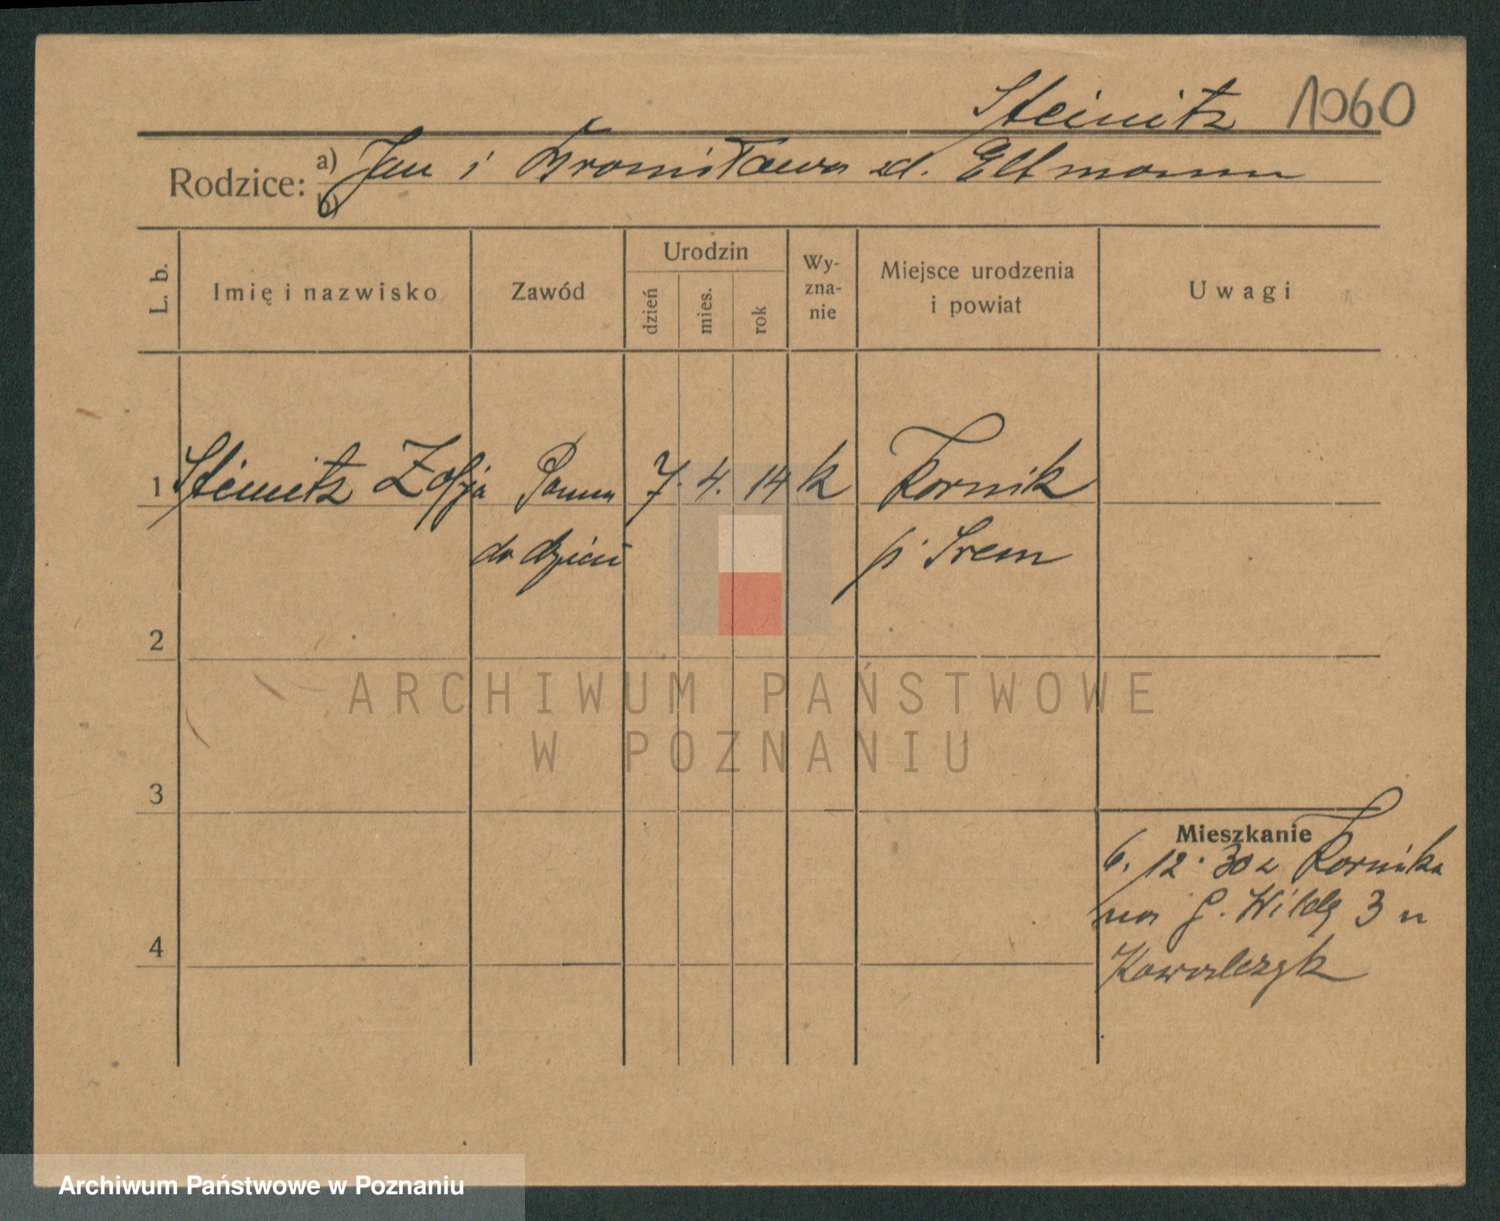 Steinitz 1060
Rodzice: a) Jan i Bronisława zd. Eltmann
b)
L. b. Imię i nazwisko Zawód Urodzin dzień mies. rok Wy-zna-nie Miejsce urodzenia i powiat Uwagi
1 Steinitz Zofja Panna 7. 4. 14 k Kornik
do dzieci p. Srem
2
ARCHIWUM PAŃSTWOWE
W POZNANIU
3
Mieszkanie
6. 12. 30 z Kornika
na G. Wildę 3 u
4
Kowalczyk
Archiwum Państwowe w Poznaniu